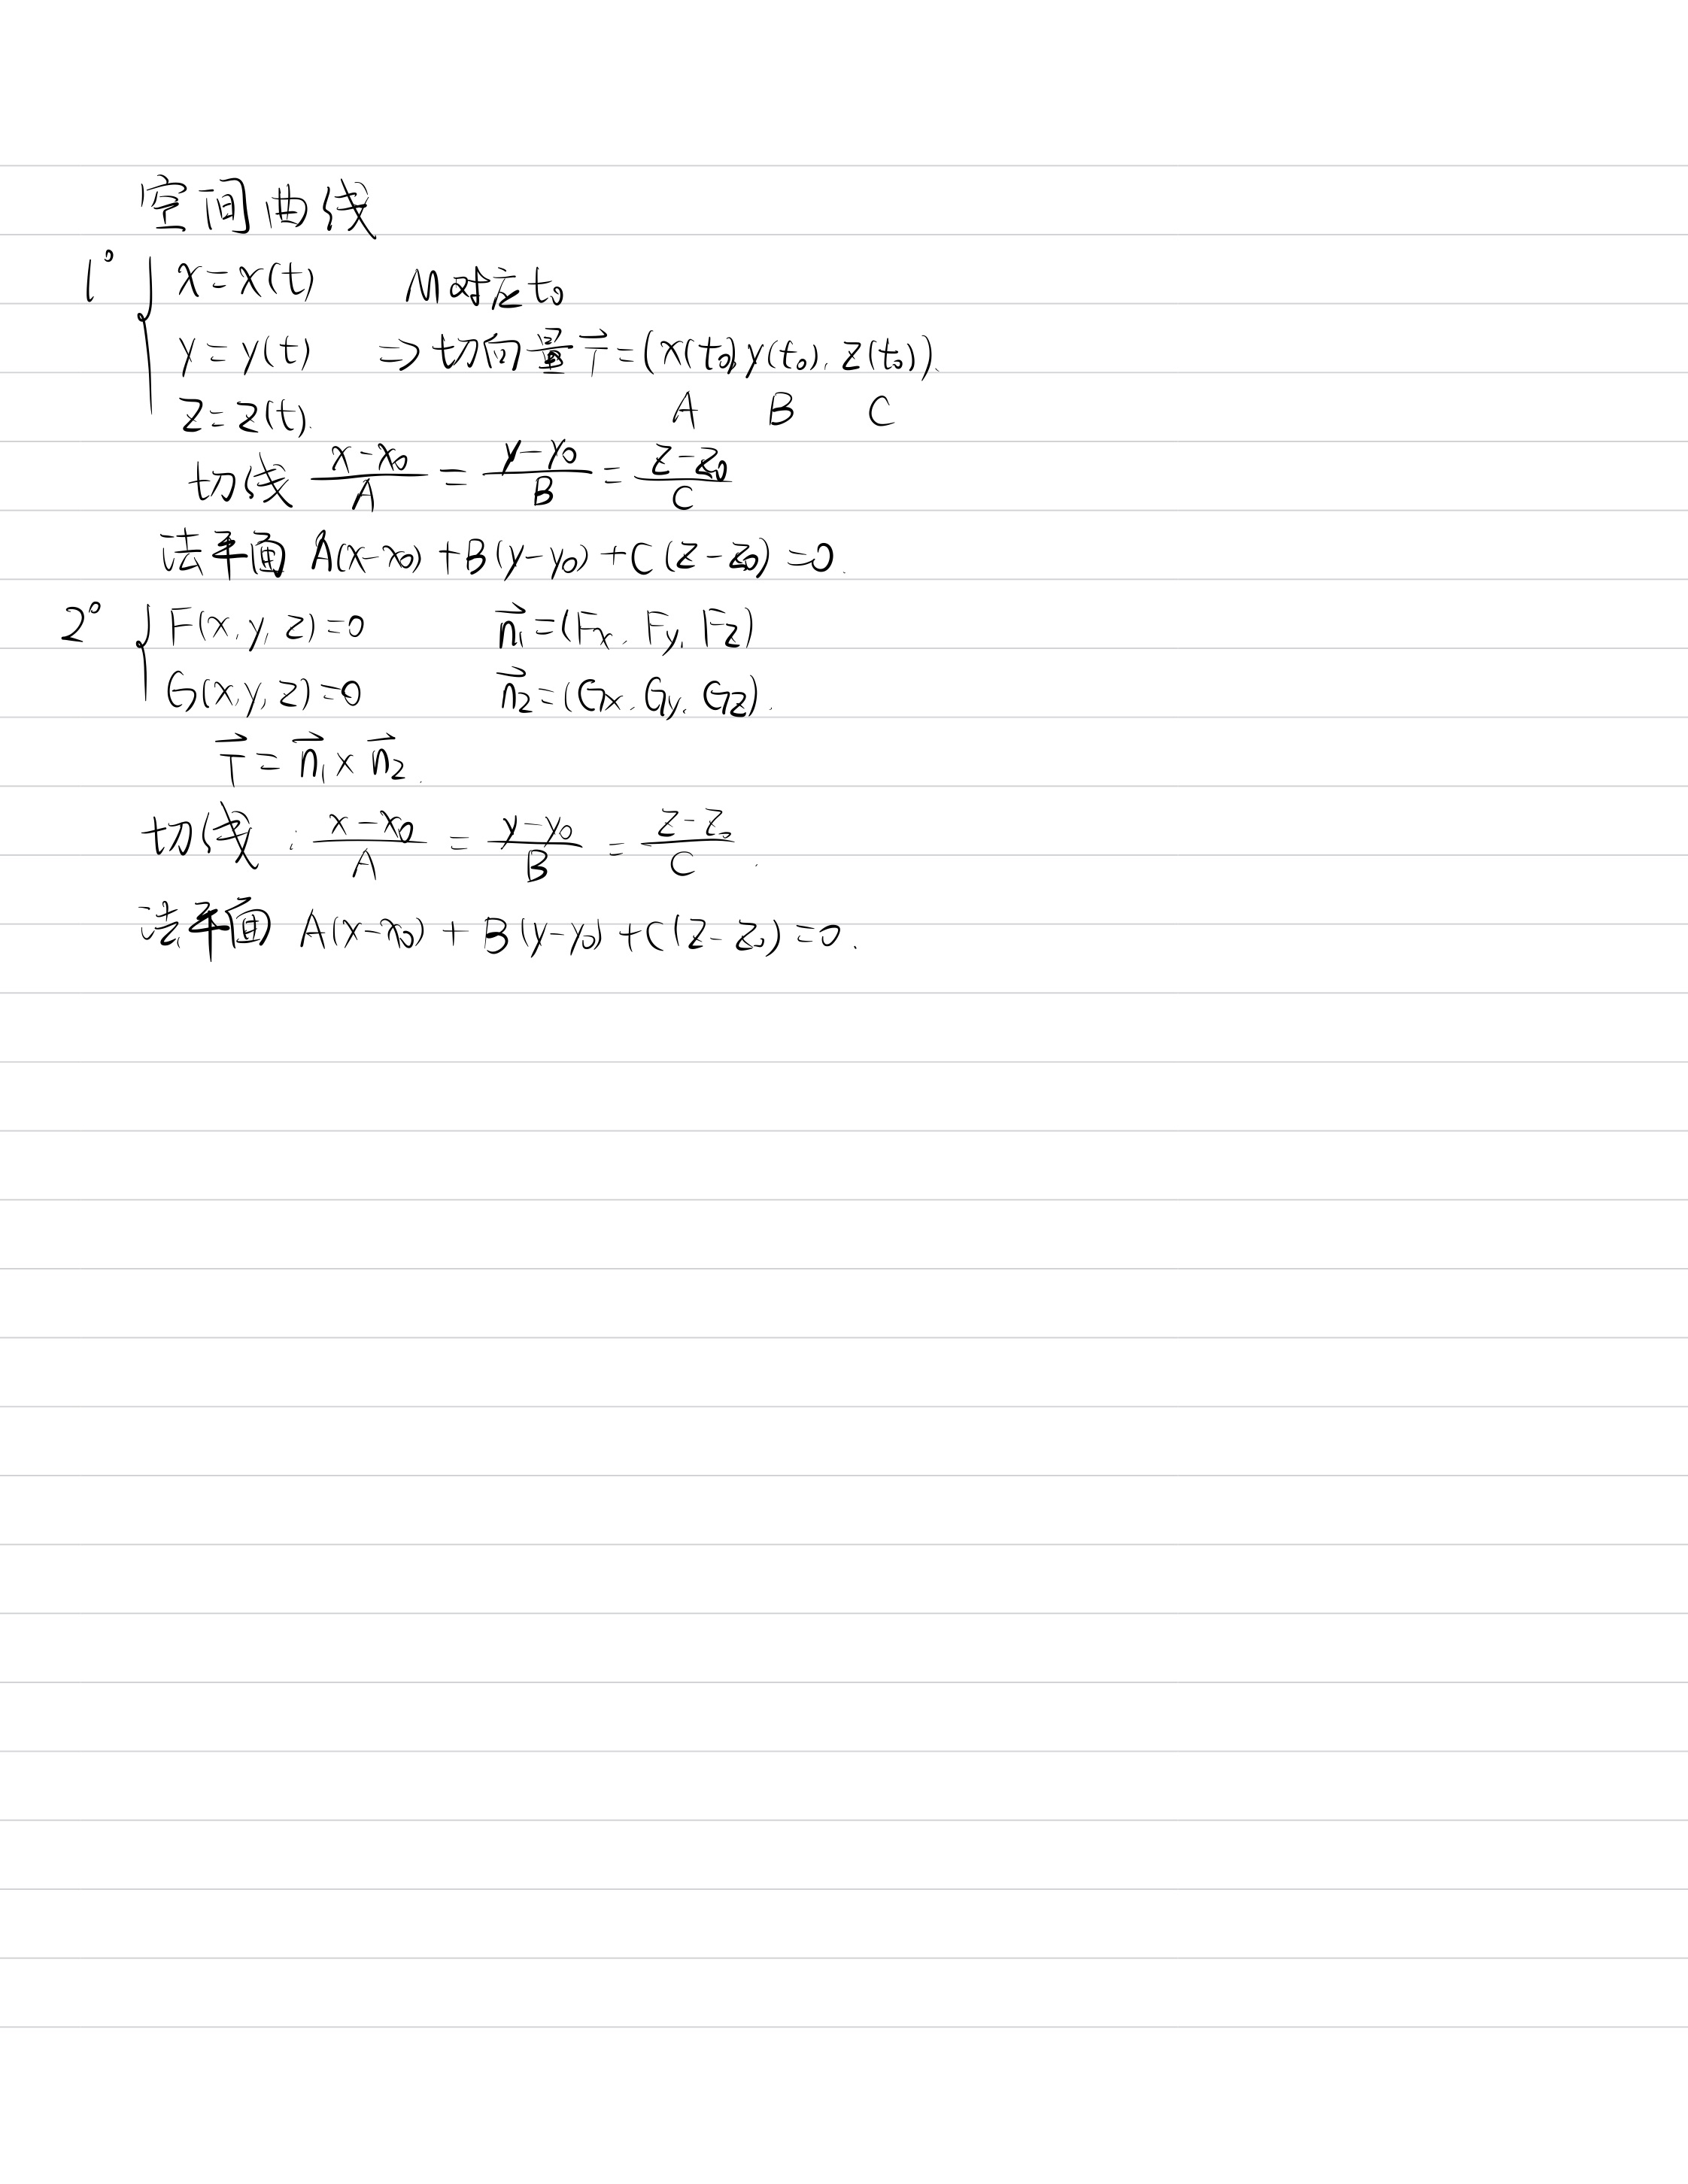 空间曲线
1° { x=x(t) M对应t₀
y=y(t) ⇒切向量T⃗=(x(t₀) y(t₀), z(t₀)).
z=z(t). A B C
切线 (x-x₀)/A = (y-y₀)/B = (z-z₀)/C
法平面 A(x-x₀)+B(y-y₀)+C(z-z₀)=0.
2° { F(x,y,z)=0 n⃗₁=(Fx, Fy, Fz)
G(x,y,z)=0 n⃗₂=(Gx, Gy, Gz).
T⃗=n⃗₁×n⃗₂.
切线: (x-x₀)/A = (y-y₀)/B = (z-z₀)/C.
法平面 A(x-x₀)+B(y-y₀)+C(z-z₀)=0.